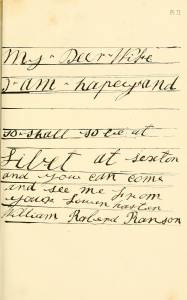 My - Dear - Wife
I - am - hapey and
so - shall so be at
Libet at sexton
and you can come
and see me from
your Loven hasben
William Roland Ranson